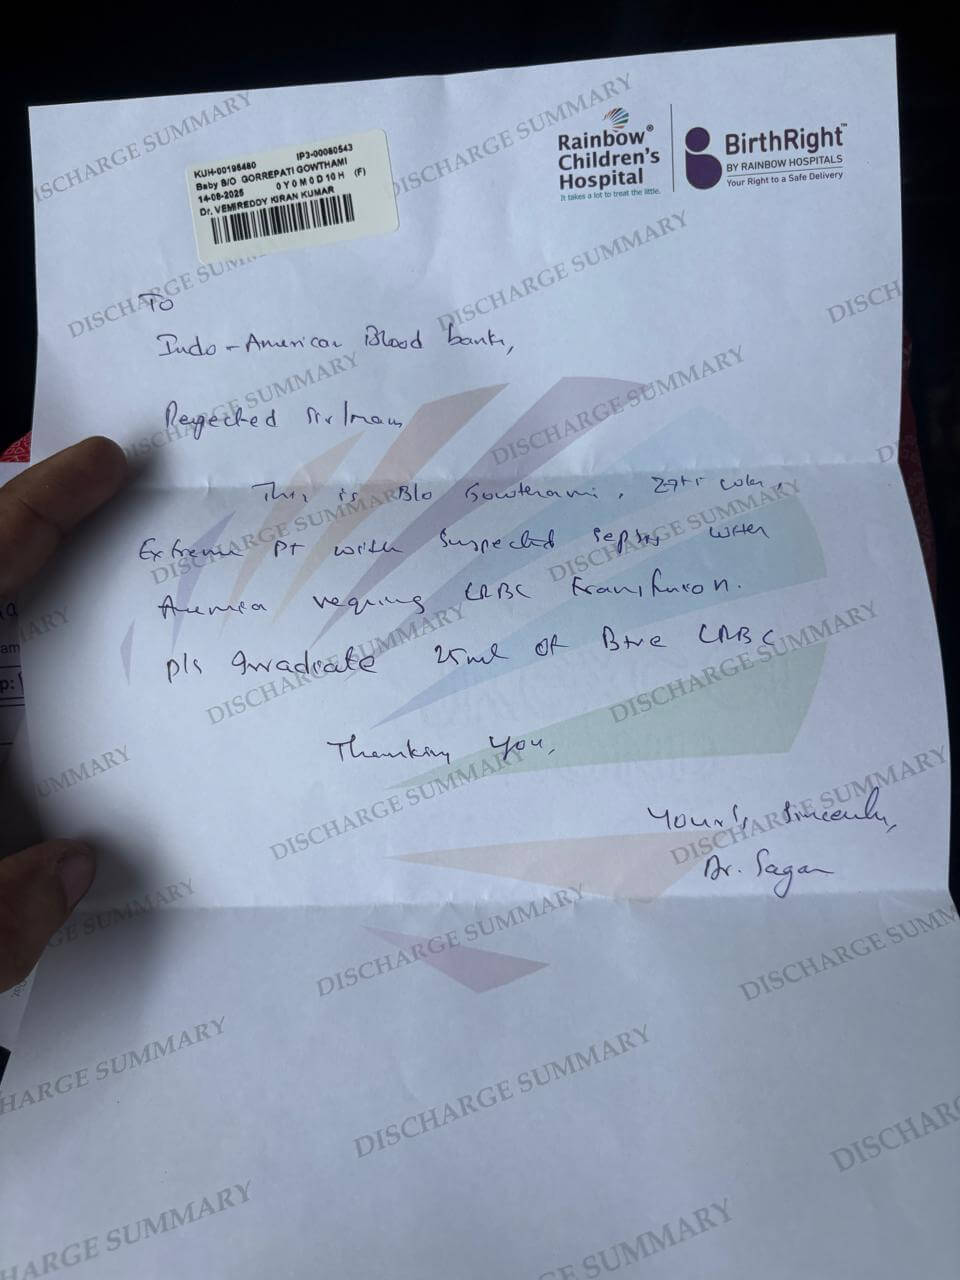 Rainbow®
Children's
Hospital
It takes a lot to treat the little.
BirthRight™
BY RAINBOW HOSPITALS
Your Right to a Safe Delivery
KUH-00198480 IP3-00080543
Baby B/O GORREPATI GOWTHAMI
14-08-2025 0 Y 0 M 0 D 10 H (F)
Dr. VEMIREDDY KIRAN KUMAR
To
Indo-American Blood bank,
Respected Sir/mam,
This is B/o Gowthami,
Extreme PT with suspected sepsis with
Anemia requring LRBC transfusion.
pls irradiate 25ml of B+ve LRBC
Thanking you,
Your's sincerely,
Dr. Sagar
DISCHARGE SUMMARY